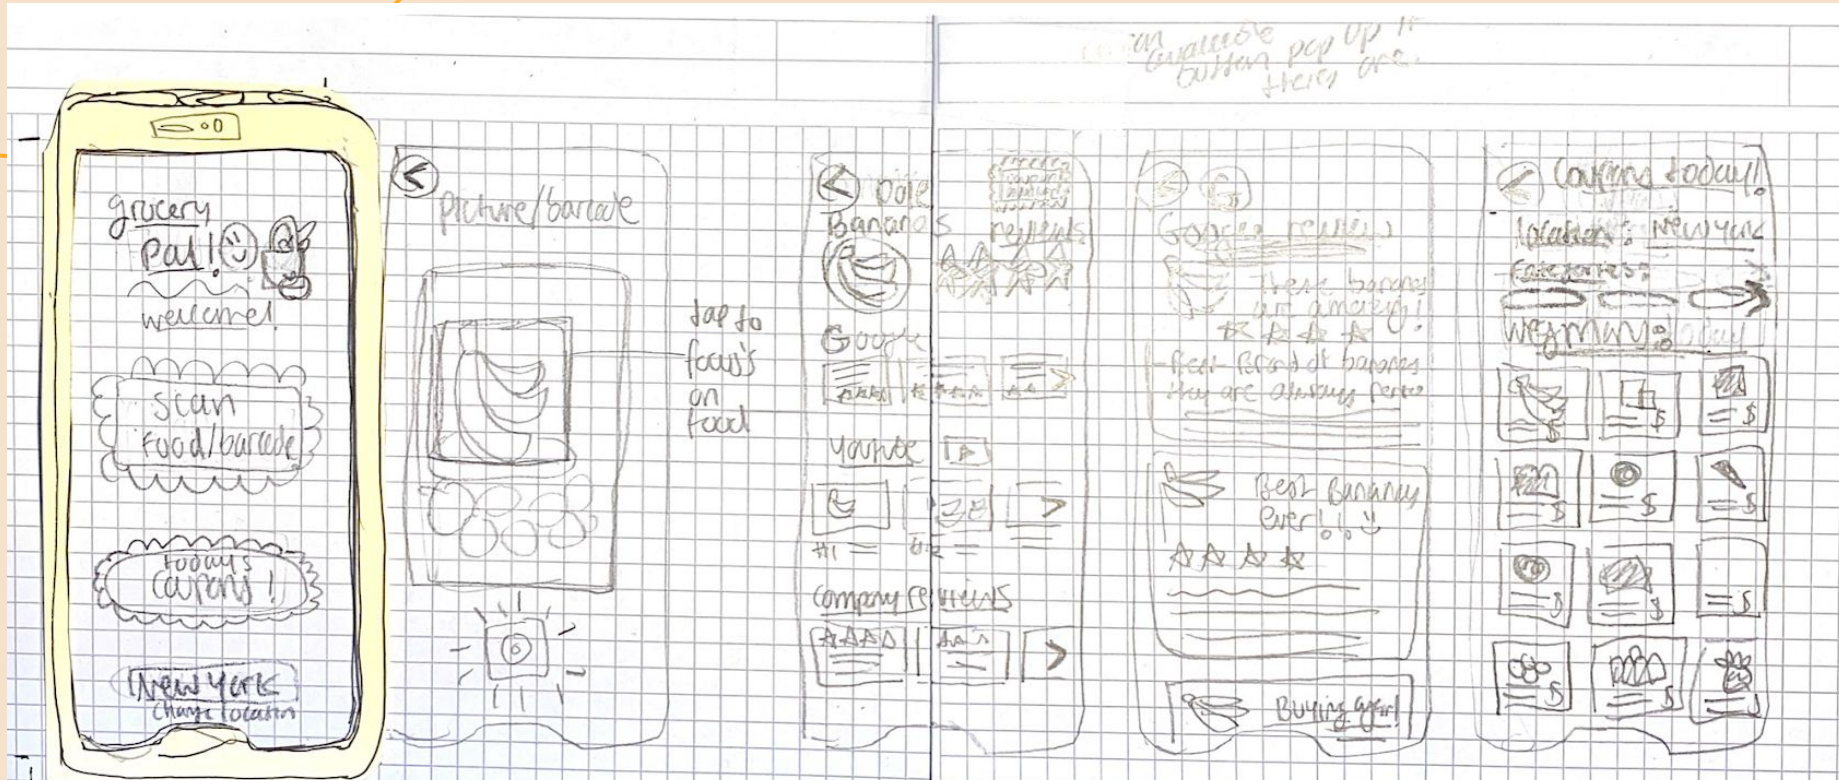 button pop up if
grocery
pal!
welcome!
scan
food/barcode
todays
coupons!
New York
Change location
<
picture/barcode
tap to
focus's
on
food
<
Dole
Bananas
reviews
Google
>
>
#1
#2
company reviews
>
<
G
Google reviews
These bananas
are amazing!
Best Brand of bananas
they are always
Best Bananas
ever!
Buying again!
Coupons today!
location: New York
categories:
wegmans: today
$
$
$
$
$
$
$
$
$
$
$
$